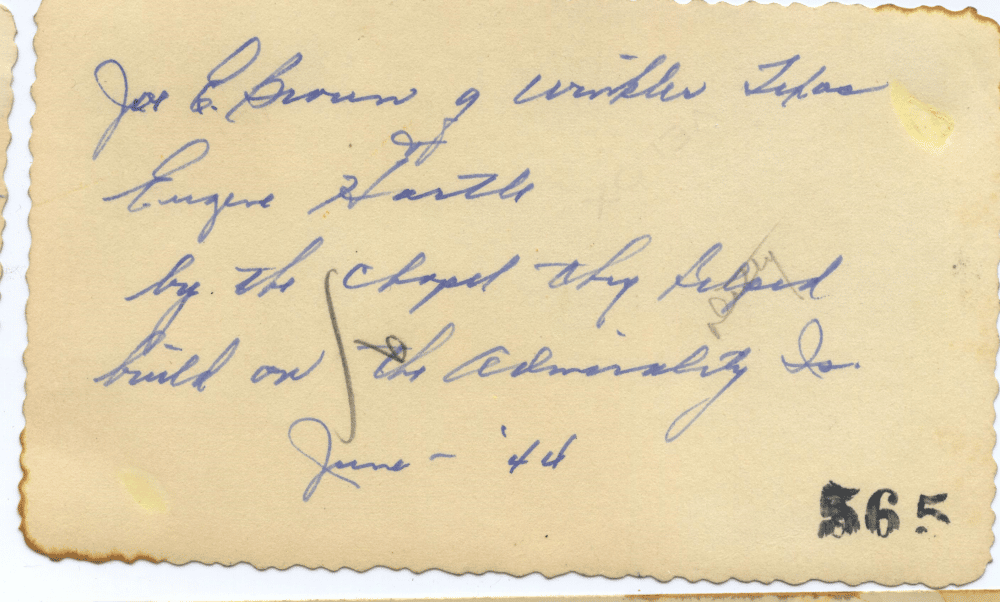 Joe E. Brown of Winkler Texas
&
Eugene Hartle
by the chapel they helped
build on the Admirality Is.
June - '44
565